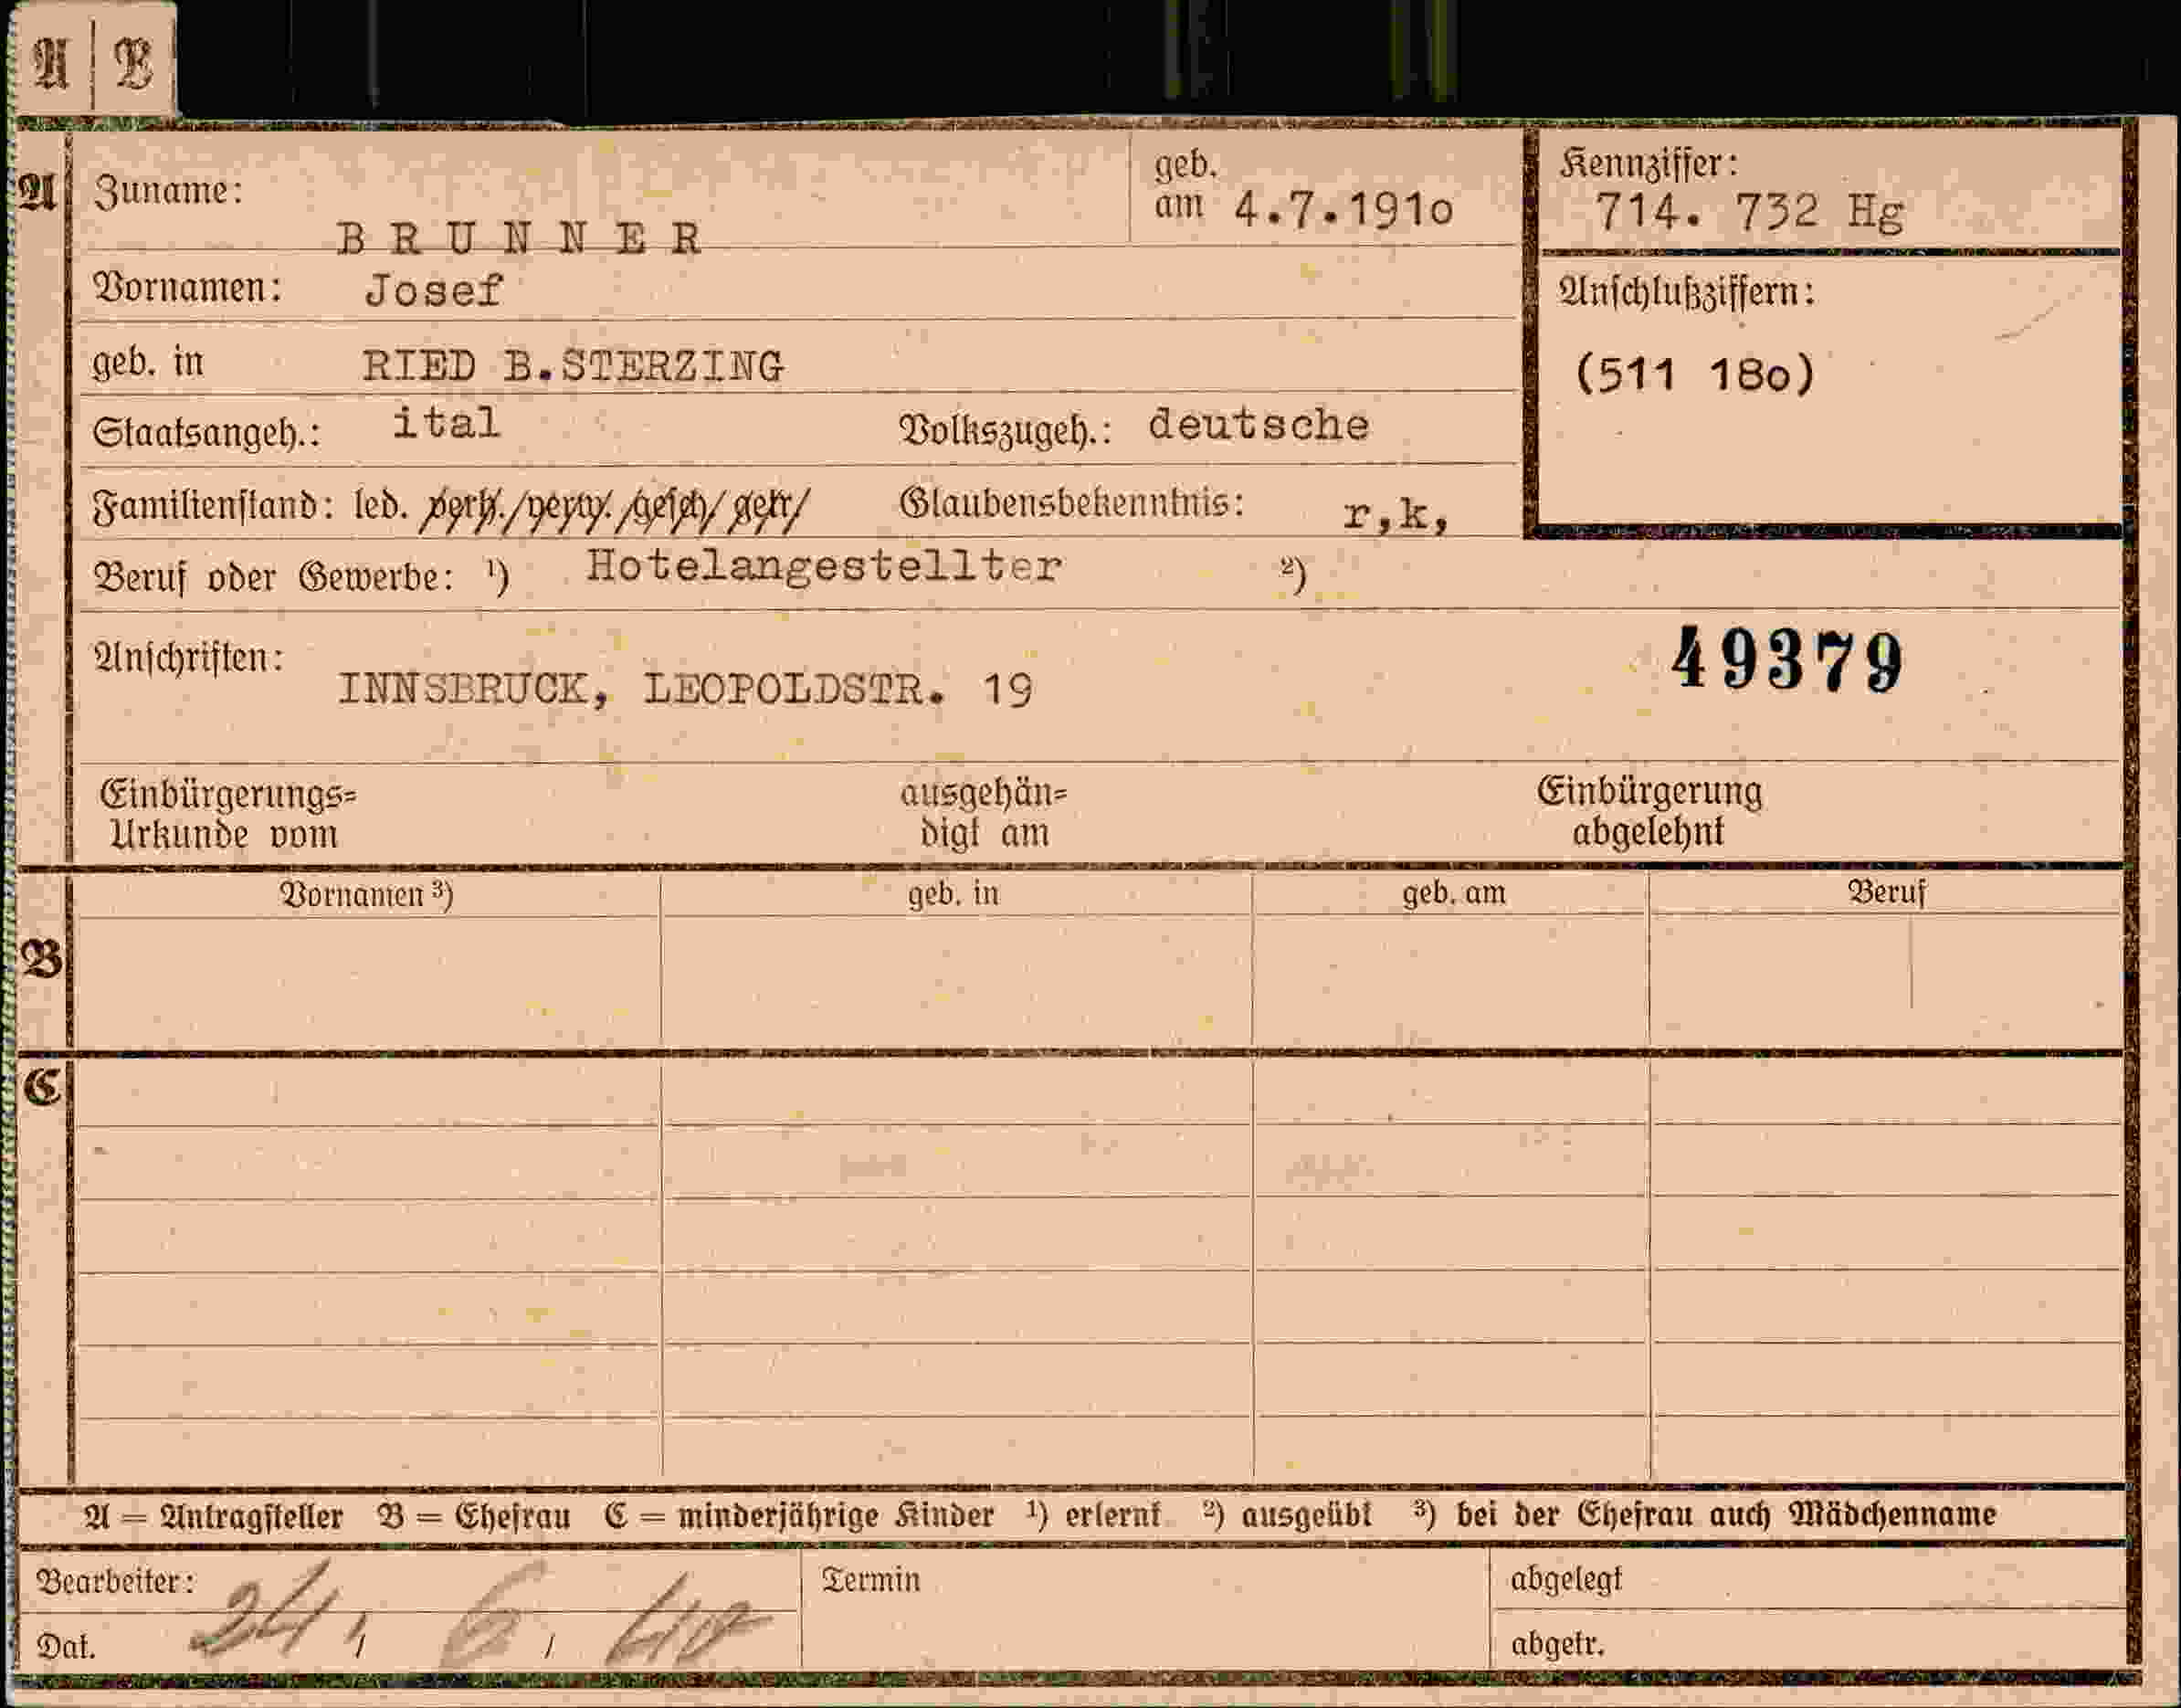 A | B
A Zuname: BRUNNER geb. am 4.7.191o Kennziffer: 714. 732 Hg
Vornamen: Josef
Anschlußziffern:
geb. in RIED B.STERZING
(511 18o)
Staatsangeh.: ital Volkszugeh.: deutsche
Familienstand: led. verh./verw./gesch/getr/ Glaubensbekenntnis: r,k,
Beruf oder Gewerbe: ¹) Hotelangestellter ²)
49379
Anschriften: INNSBRUCK, LEOPOLDSTR. 19
Einbürgerungs= ausgehän= Einbürgerung
Urkunde vom digt am abgelehnt
Vornamen ³) geb. in geb. am Beruf
B
C
A = Antragsteller B = Ehefrau C = minderjährige Kinder ¹) erlernt ²) ausgeübt ³) bei der Ehefrau auch Mädchenname
Bearbeiter: Termin abgelegt
Dat. 24, 6, 40 abgetr.